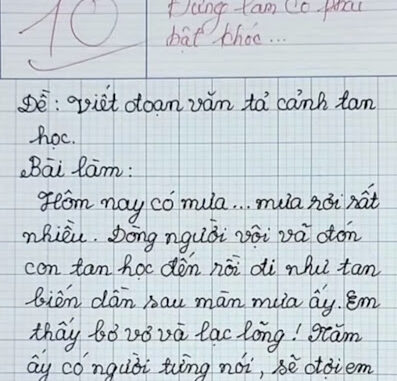 10
Đừng làm cô phải
bật khóc...
Đề: Viết đoạn văn tả cảnh tan
học.
Bài làm:
Hôm nay có mưa... mưa rơi rất
nhiều. Dòng người vội vã đón
con tan học đến rồi đi như tan
biến dần sau màn mưa ấy. Em
thấy bơ vơ và lạc lõng! Năm
ấy có người từng nói, sẽ đợi em